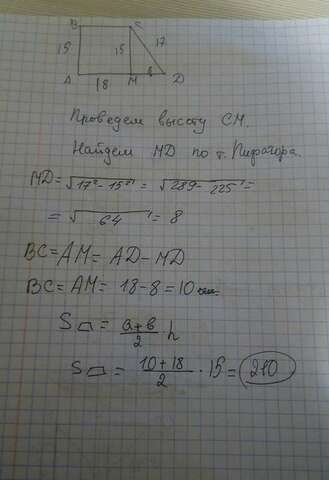 B C
15 15 17
A 18 M 8 D
Проведем высоту CM.
Найдем MD по т. Пифагора.
MD = √17² - 15² = √289 - 225 =
= √64 = 8
BC = AM = AD - MD
BC = AM = 18 - 8 = 10
S = a+b/2 h
S = 10+18/2 · 15 = 210